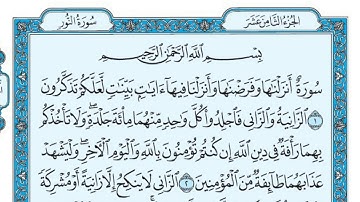 سُورَةُ النُّورِ الجُزءُ الثَّامِنَ عَشَرَ
بِسْمِ ٱللَّهِ ٱلرَّحْمَٰنِ ٱلرَّحِيمِ
سُورَةٌ أَنزَلْنَٰهَا وَفَرَضْنَٰهَا وَأَنزَلْنَا فِيهَآ ءَايَٰتٍۭ بَيِّنَٰتٍ لَّعَلَّكُمْ تَذَكَّرُونَ
١ ٱلزَّانِيَةُ وَٱلزَّانِى فَٱجْلِدُوا۟ كُلَّ وَٰحِدٍ مِّنْهُمَا مِا۟ئَةَ جَلْدَةٍ ۖ وَلَا تَأْخُذْكُم
بِهِمَا رَأْفَةٌ فِى دِينِ ٱللَّهِ إِن كُنتُمْ تُؤْمِنُونَ بِٱللَّهِ وَٱلْيَوْمِ ٱلْءَاخِرِ ۖ وَلْيَشْهَدْ
عَذَابَهُمَا طَآئِفَةٌ مِّنَ ٱلْمُؤْمِنِينَ ٢ ٱلزَّانِى لَا يَنكِحُ إِلَّا زَانِيَةً أَوْ مُشْرِكَةً